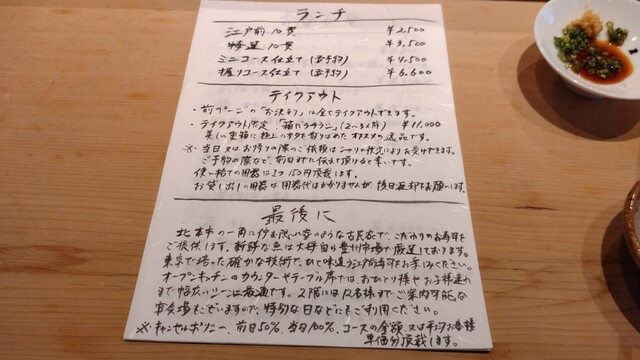 ランチ
江戸前 10貫 ¥2,500
特選 10貫 ¥3,500
ミニコース仕立て (要予約) ¥4,500
握りコース仕立て (要予約) ¥6,600
テイクアウト
・前ページの "お決まり" は全てテイクアウトできます。
・テイクアウト限定 「箱バラチラシ」(2~3人前) ¥11,000
美しい重箱に極上のネタを散りばめたオススメの逸品です。
※ 当日又はお持りの際のご依頼はシャリの状況によりお受けできます。
ご予約の際など、前日までに伝えて頂けると幸いです。
使い捨ての用器は1つ150円頂戴します。
お貸し出しの用器は用器代はかかりませんが、後日返却をお願いします。
最後に
北本市の一角に佇む隠れ家のような古民家で、こだわりのお寿司を
ご提供します。新鮮な魚は大将自ら豊洲市場で厳選しております。
東京で培った確かな技術で、ひと味違う江戸前寿司をお楽しみください。
オープンキッチンのカウンターやテーブル席では、おひとり様やお子様連れ
まで幅広いシーンに最適です。2階には12名様までご案内可能な
宴会場もございますので、特別な日などにもご利用ください。
※ キャンセルポリシー、前日50%、当日100%、コースの金額又は平均お客様
単価分頂戴します。